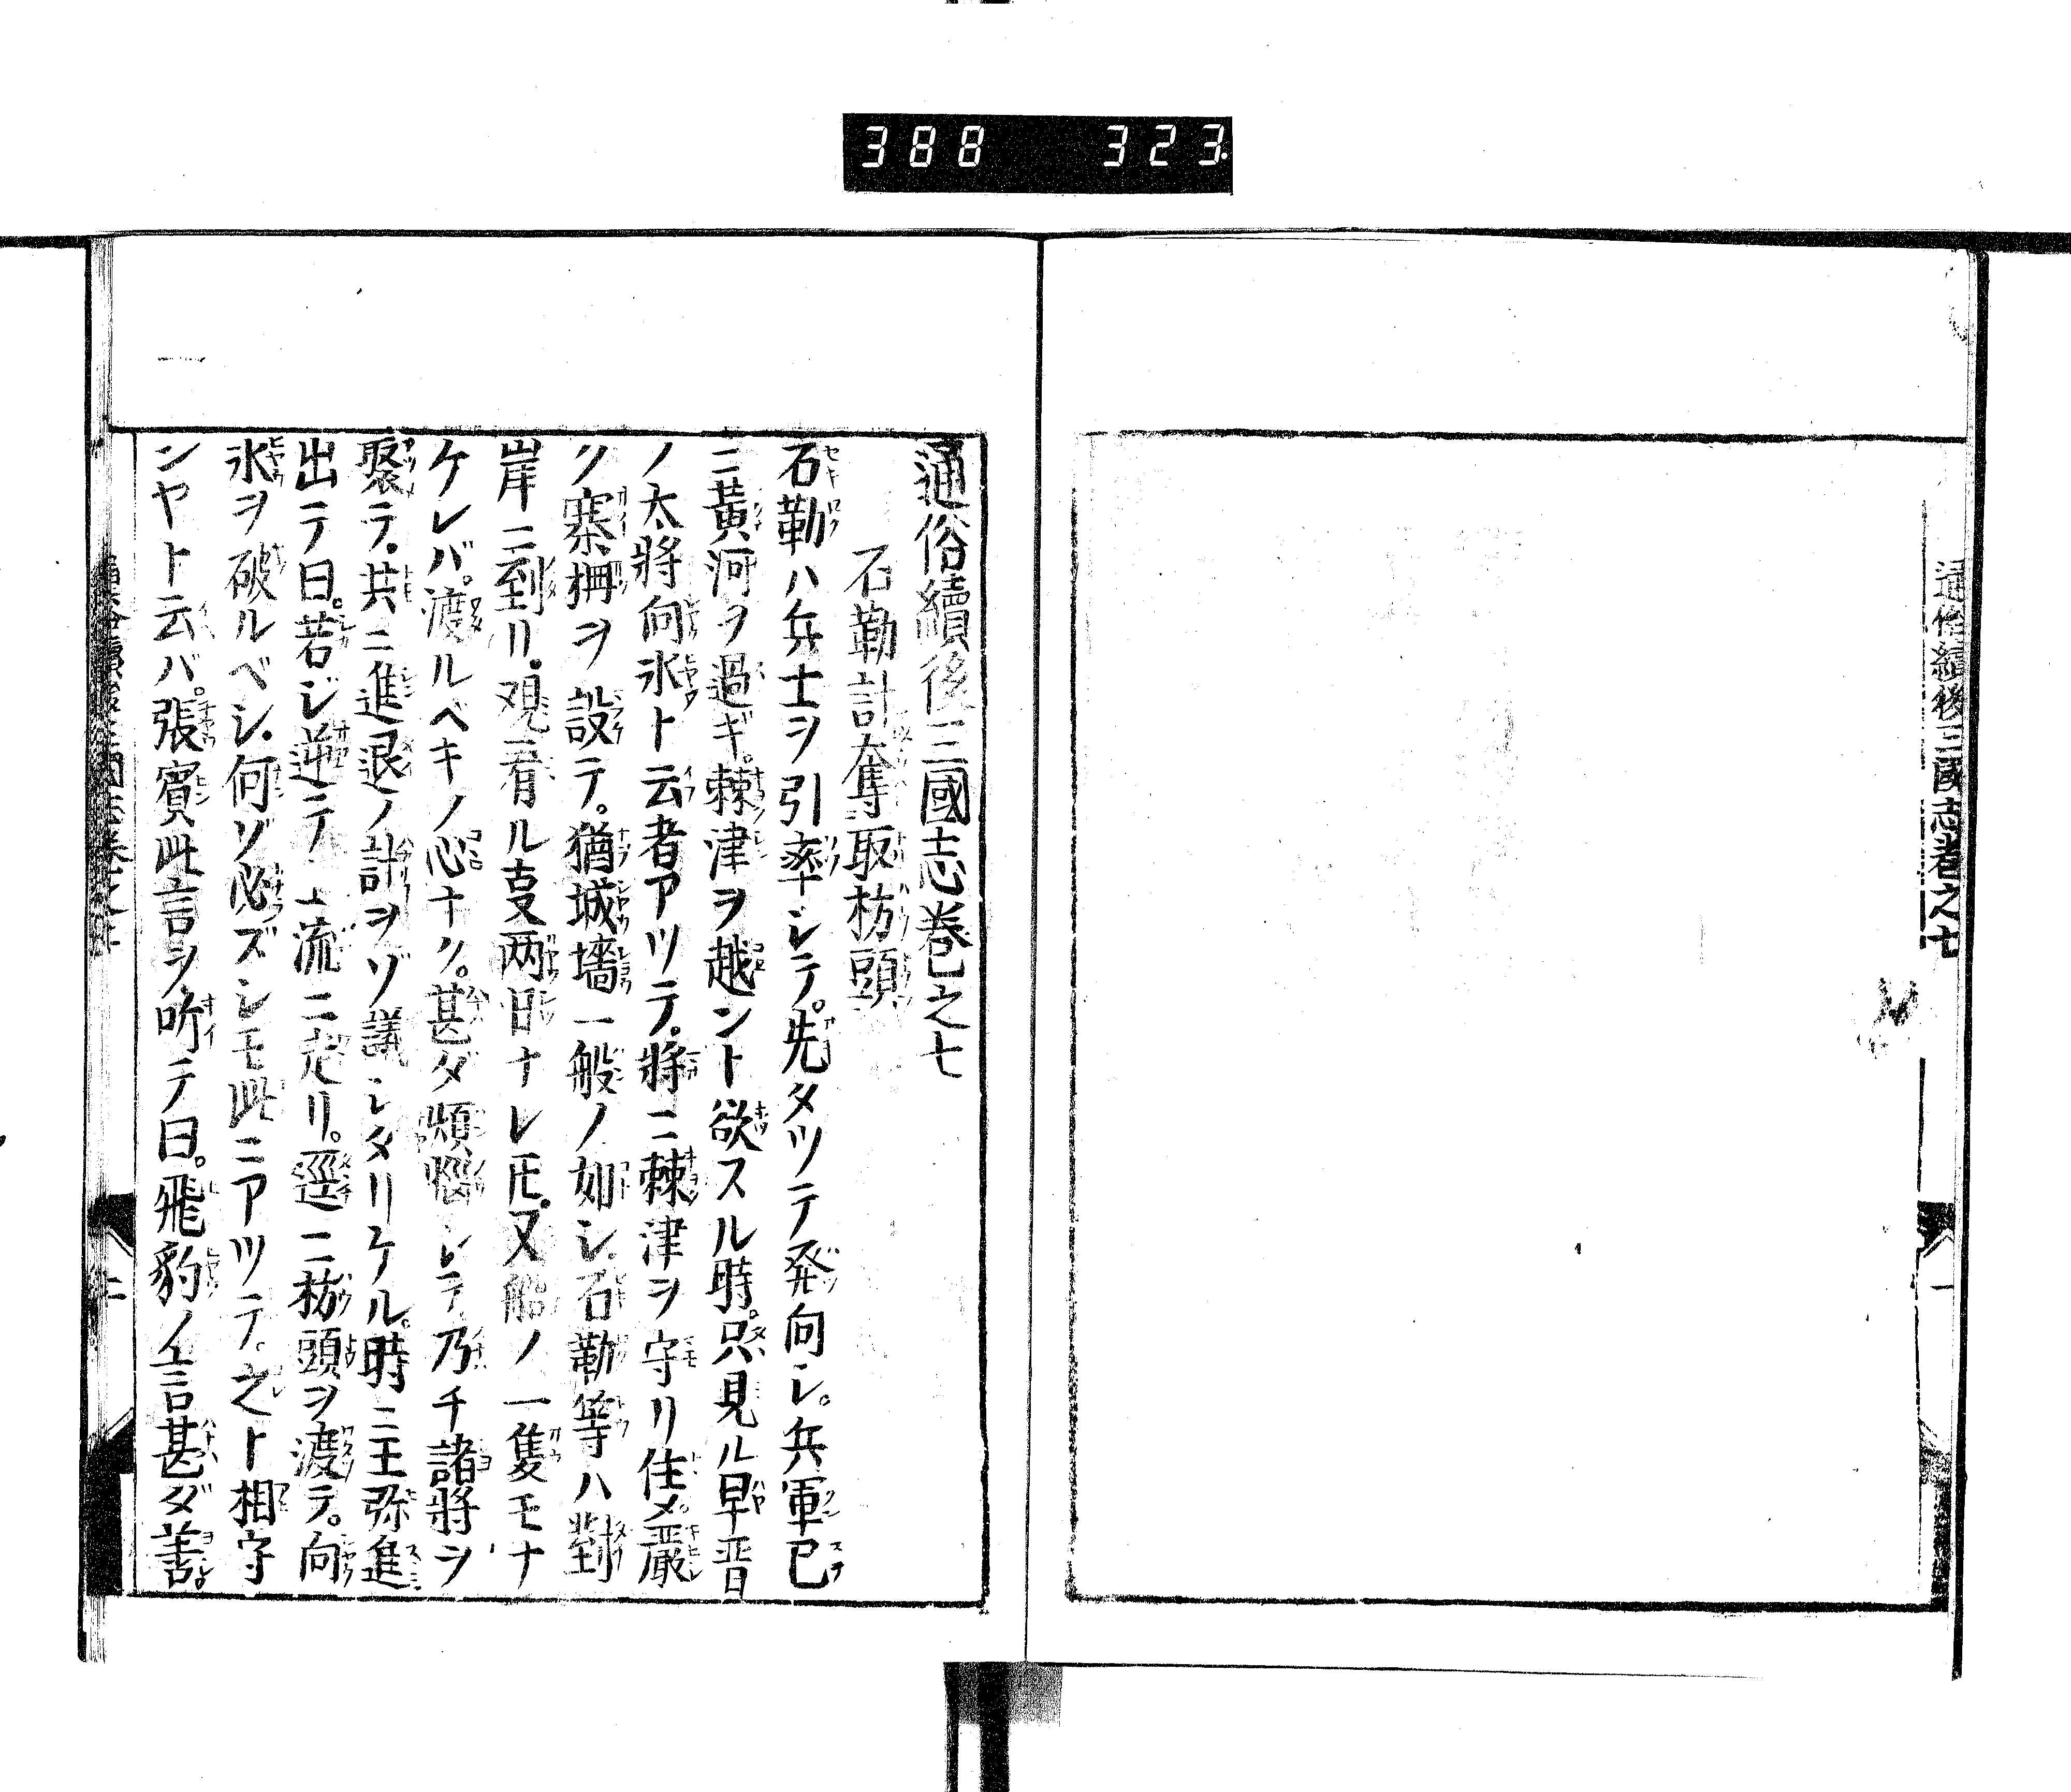 388 323
通俗續後三國志卷之七
一
通俗續後三國志巻之七
石勒計奪取枋頭
石勒ハ兵士ヲ引率シテ。先タツテ発向シ。兵軍已
ニ黄河ヲ過ギ。棘津ヲ越ント欲スル時。只見ル早晋
ノ大將向氷ト云者アツテ。將ニ棘津ヲ守リ住メ。嚴
ク寨柵ヲ設テ。猶城墻一般ノ如シ。石勒等ハ對
岸ニ到リ。观看ル支两日ナレ𪜈。又船ノ一隻モナ
ケレバ。渡ルベキノ心ナク。甚ダ煩惱シテ乃チ諸將ヲ
聚テ。共ニ進退ノ計ヲゾ議シタリケル。時ニ王弥進
出テ曰。若シ逆テ上流ニ㐬リ。逕ニ枋頭ヲ渡テ。向
氷ヲ破ルベシ。何ゾ必ズシモ此ニアツテ。之ト相守
ンヤト云バ。張賓此言ヲ听テ曰。飛豹ノ言甚ダ善。